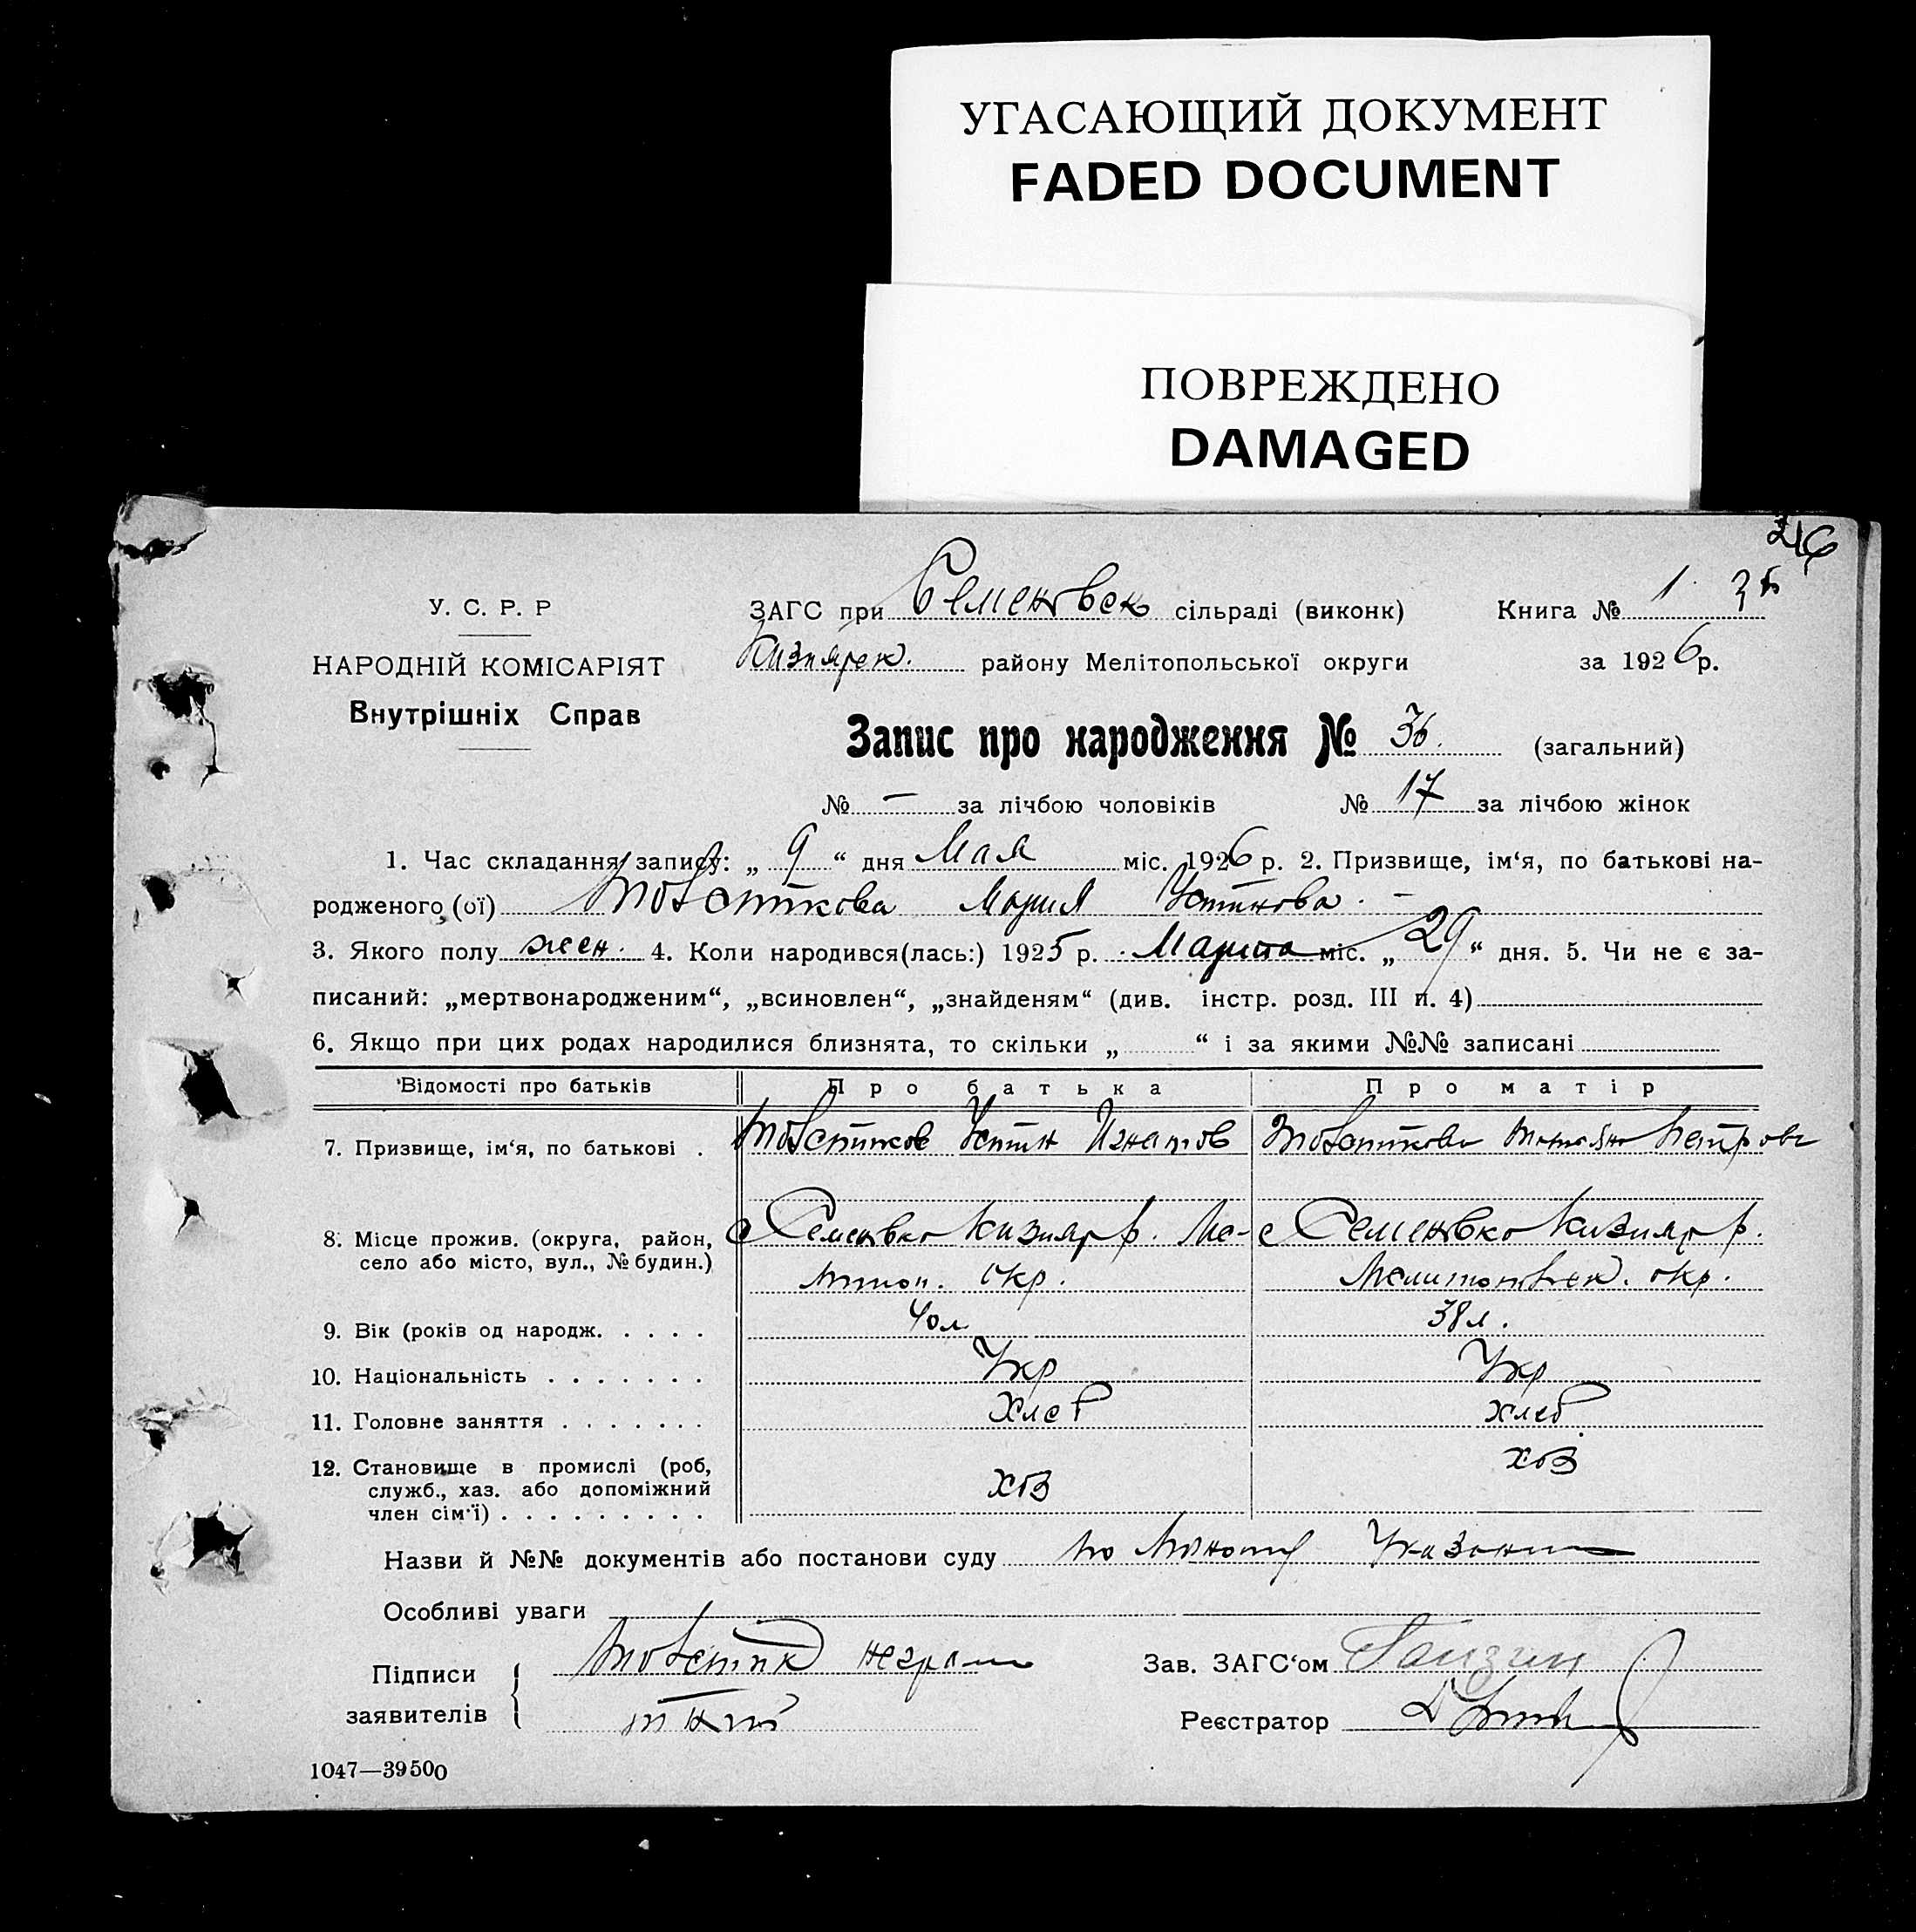 УГАСАЮЩИЙ ДОКУМЕНТ
FADED DOCUMENT
ПОВРЕЖДЕНО
DAMAGED
У. С. Р. Р
НАРОДНІЙ КОМІСАРІЯТ
Внутрішніх Справ
ЗАГС при Семеновск сільраді (виконк) Книга № 1
Кизиярск. району Мелітопольської округи за 1926 р.
Запис про народження № 36. (загальний)
№ — за лічбою чоловіків № 17 за лічбою жінок
1. Час складання запису: „ 9 “ дня Мая міс. 1926 р. 2. Призвище, ім‘я, по батькові на-
родженого (ої) Товстикова Мария Устинова. –
3. Якого полу жен. 4. Коли народився(лась:) 1925 р. Марта міс. „ 29 “ дня. 5. Чи не є за-
писаний: „мертвонародженим“, „всиновлен“, „знайденям“ (див. інстр. розд. III п. 4)
6. Якщо при цих родах народилися близнята, то скільки „ “ і за якими №№ записані
Відомості про батьків Про батька Про матір
7. Призвище, ім‘я, по батькові . Товстиков Устин Игнатов Товстикова Петрова
8. Місце прожив. (округа, район, с Семеновка Кизияр р. Ме- с Семеновка Кизияр р.
село або місто, вул., № будин.) литоп. окр. Мелитопольск. окр.
9. Вік (років од народж. . . . . 40 л 38 л.
10. Національність . . . . . . . Укр Укр
11. Головне заняття . . . . . . . Хлеб хлеб
12. Становище в промислі (роб, хоз
служб., хаз. або допоміжний хоз
член сім‘ї) . . . . . . . . .
Назви й №№ документів або постанови суду по
Особливі уваги
Підписи Товстик неграм Зав. ЗАГС‘ом
заявителів Реєстратор
1047—39500